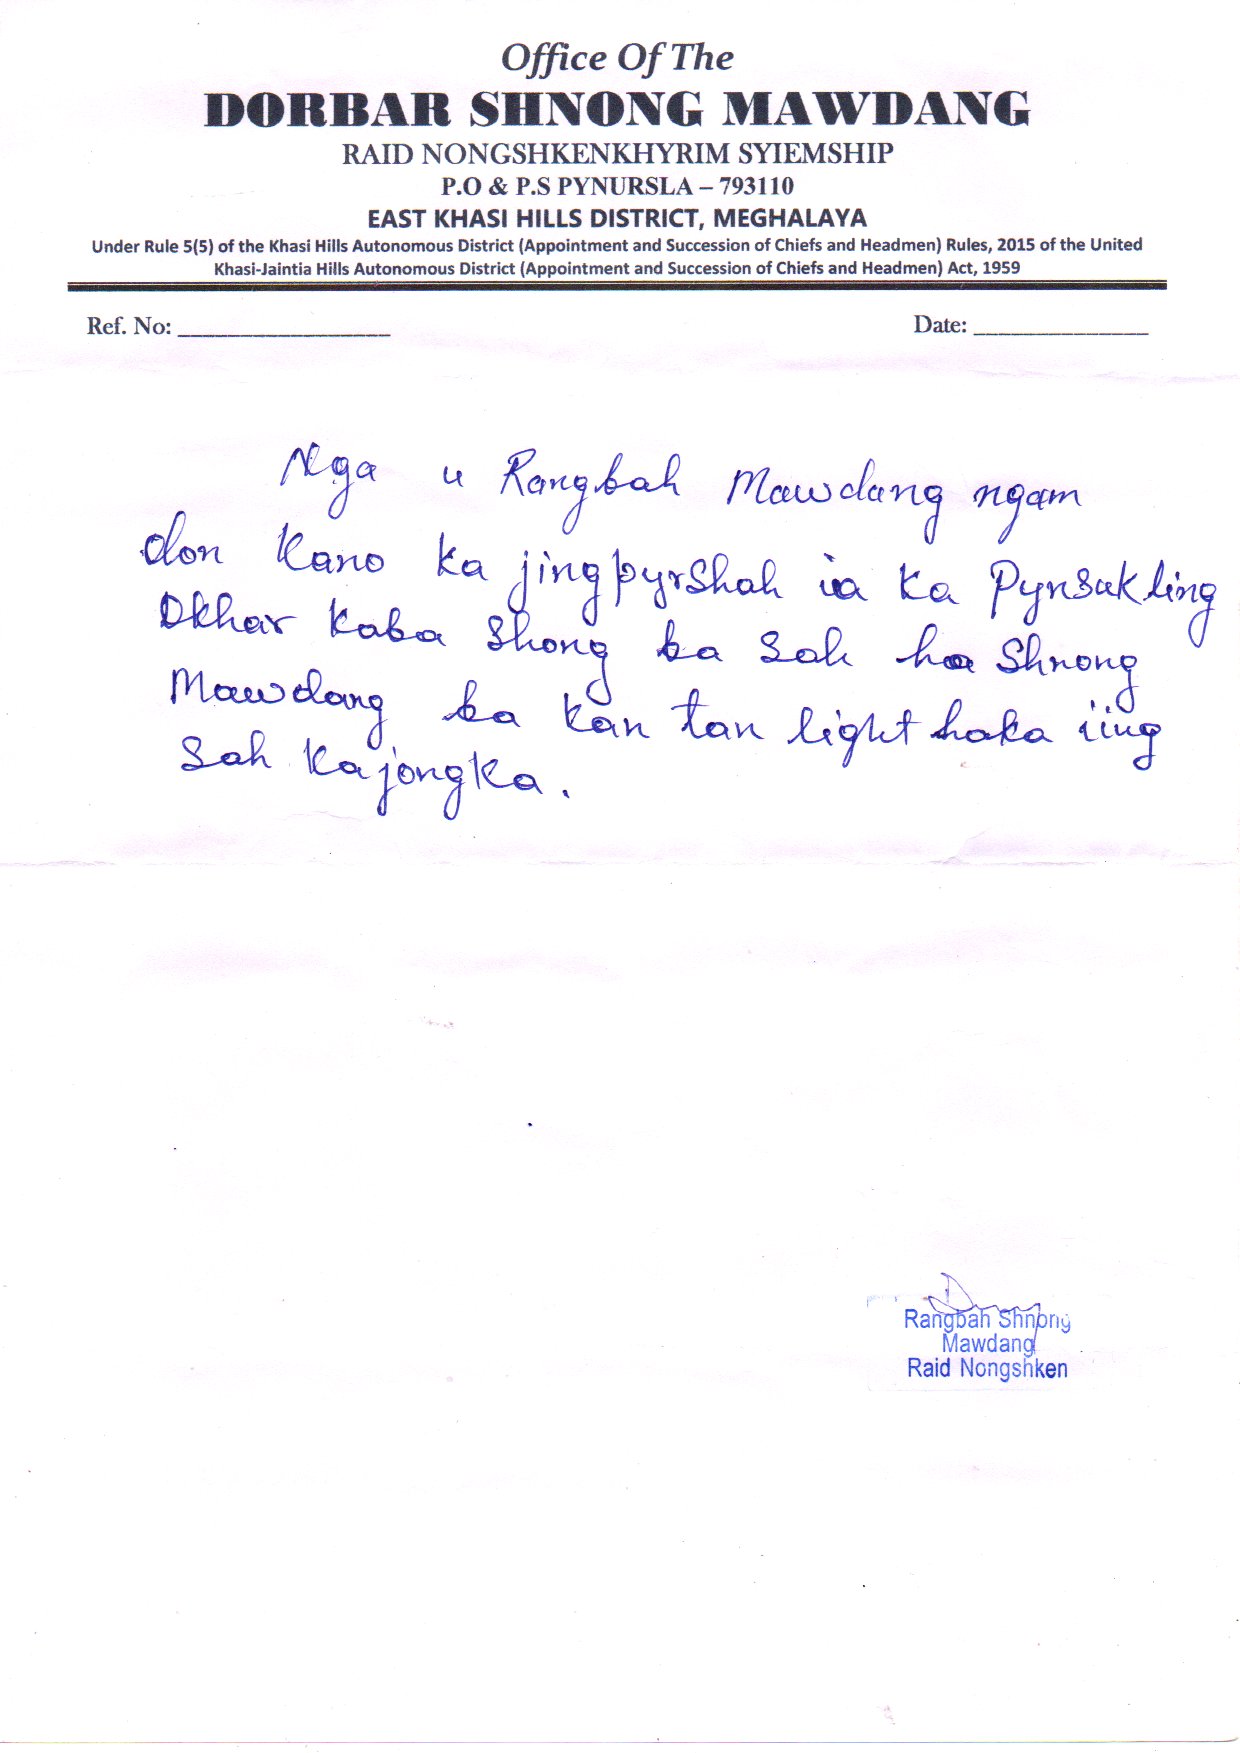 Office Of The
DORBAR SHNONG MAWDANG
RAID NONGSHKENKHYRIM SYIEMSHIP
P.O & P.S PYNURSLA – 793110
EAST KHASI HILLS DISTRICT, MEGHALAYA
Under Rule 5(5) of the Khasi Hills Autonomous District (Appointment and Succession of Chiefs and Headmen) Rules, 2015 of the United
Khasi-Jaintia Hills Autonomous District (Appointment and Succession of Chiefs and Headmen) Act, 1959
Ref. No: ________________ Date: ______________
Nga u Rangbah Mawdang ngam
don kano ka jingpyrshah ia ka Pynsukling
Dkhar kaba shong ba sah ha Shnong
Mawdang ba kan tan light haka iing
sah kajongka.
Rangbah Shnong
Mawdang
Raid Nongshken